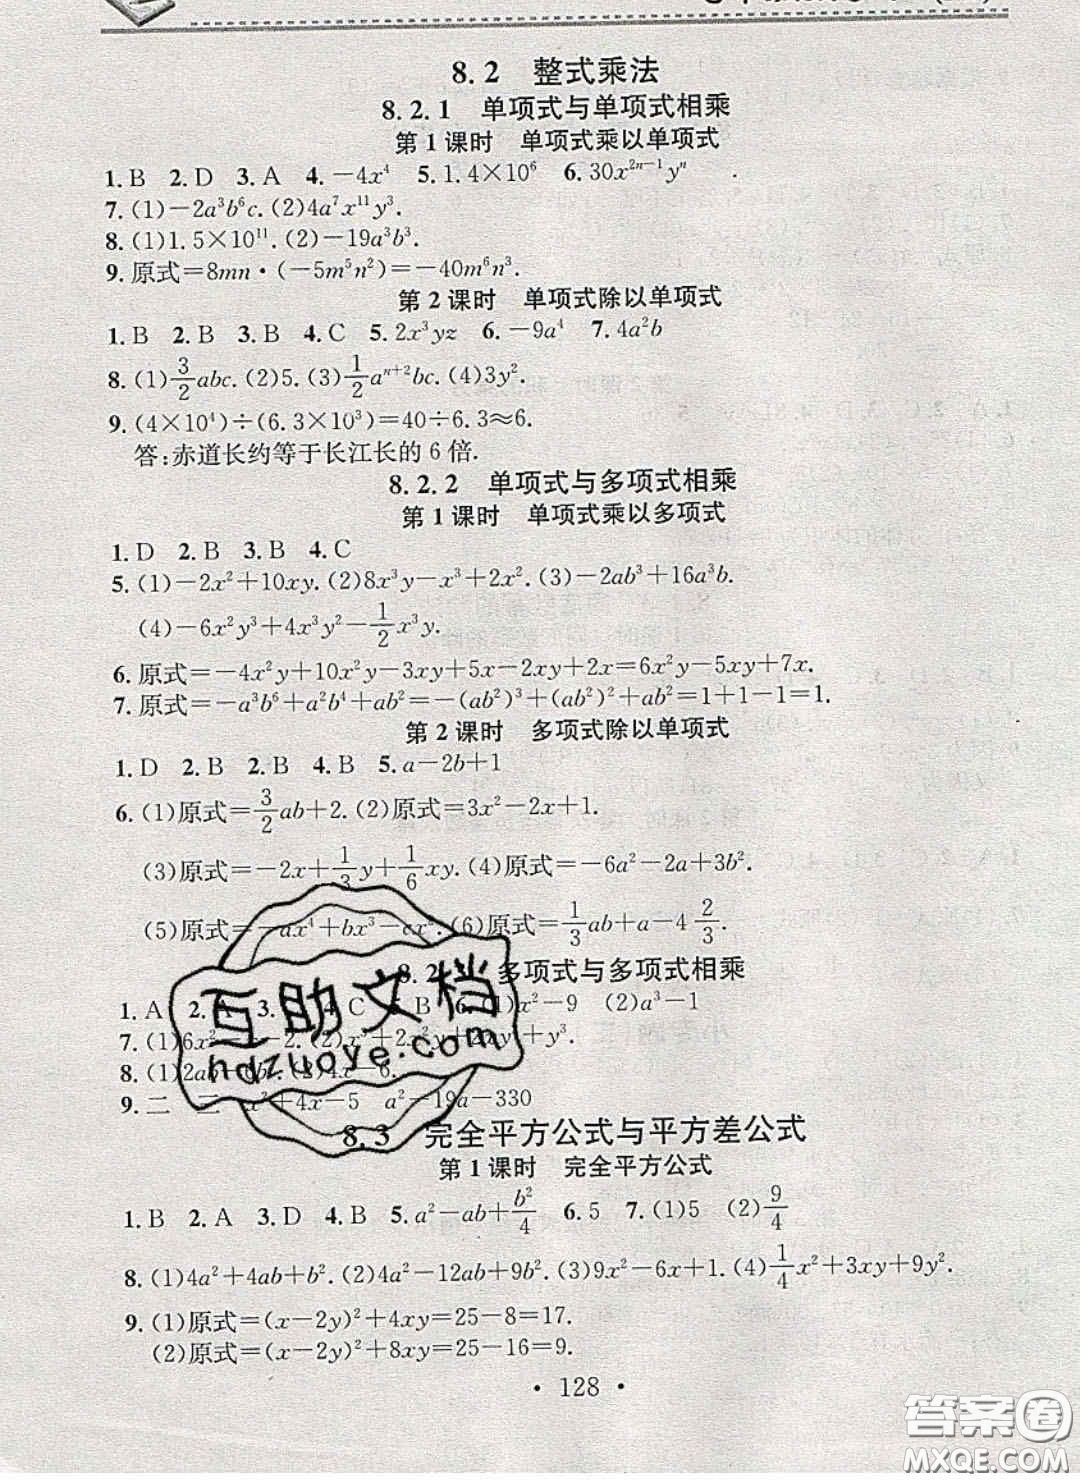 8.2 整式乘法
8.2.1 单项式与单项式相乘
第1课时 单项式乘以单项式
1.B 2.D 3.A 4.-4x⁴ 5.1.4×10⁶ 6.30x²ⁿ⁻¹yⁿ
7.(1)-2a³b⁶c.(2)4a⁷x¹¹y³.
8.(1)1.5×10¹¹.(2)-19a³b³.
9.原式=8mn·(-5m⁵n²)=-40m⁶n³.
第2课时 单项式除以单项式
1.B 2.B 3.B 4.C 5.2x³yz 6.-9a⁴ 7.4a²b
8.(1)3/2abc.(2)5.(3)1/2aⁿ⁺²bc.(4)3y².
9.(4×10⁴)÷(6.3×10³)=40÷6.3≈6.
答:赤道长约等于长江长的6倍.
8.2.2 单项式与多项式相乘
第1课时 单项式乘以多项式
1.D 2.B 3.B 4.C
5.(1)-2x²+10xy.(2)8x³y-x³+2x².(3)-2ab³+16a³b.
(4)-6x²y³+4x³y²-1/2x³y.
6.原式=-4x²y+10x²y-3xy+5x-2xy+2x=6x²y-5xy+7x.
7.原式=-a³b⁶+a²b⁴+ab²=-(ab²)³+(ab²)²+ab²=1+1-1=1.
第2课时 多项式除以单项式
1.D 2.B 2.B 4.B 5.a-2b+1
6.(1)原式=3/2ab+2.(2)原式=3x²-2x+1.
(3)原式=-2x+1/3y+1/6xy.(4)原式=-6a²-2a+3b².
(5)原式=-ax⁴+bx³-cx².(6)原式=1/3ab+a-4 2/3.
8.2 多项式与多项式相乘
1.A 2.A 3. 4.C 5.B 6.(1)x²-9 (2)a³-1
7.(1)6x² -2.(2)x³+2x²y+2xy²+y³.
8.(1)2ab .(2)4x-6.
9.二 三 x²+4x-5 a²-19a-330
互助文档
hdzuoye.com
8.3 完全平方公式与平方差公式
第1课时 完全平方公式
1.B 2.A 3.D 4.B 5.a²-ab+b²/4 6.5 7.(1)5 (2)9/4
8.(1)4a²+4ab+b².(2)4a²-12ab+9b².(3)9x²-6x+1.(4)1/4x²+3xy+9y².
9.(1)原式=(x-2y)²+4xy=25-8=17.
(2)原式=(x-2y)²+8xy=25-16=9.
· 128 ·
答案圈
MXQE.COM